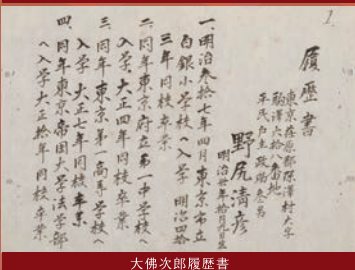 1.
履歴書
東京荏原郡 村大字
駒澤六拾八番地
平民戸主政助叁男
野尻清彦
明治卅年拾月九日生
一、明治叁拾七年四月東京市立
白銀小學校へ入學 明治四拾
三年同校卒業
二、同年東京府立第一中学校へ
入学、大正四年同校卒業
三、同年東京第一高等学校へ
入学 大正七年同校卒業
四、同年東京帝国大学法学部
へ入学 大正拾年同校卒業
大佛次郎履歴書